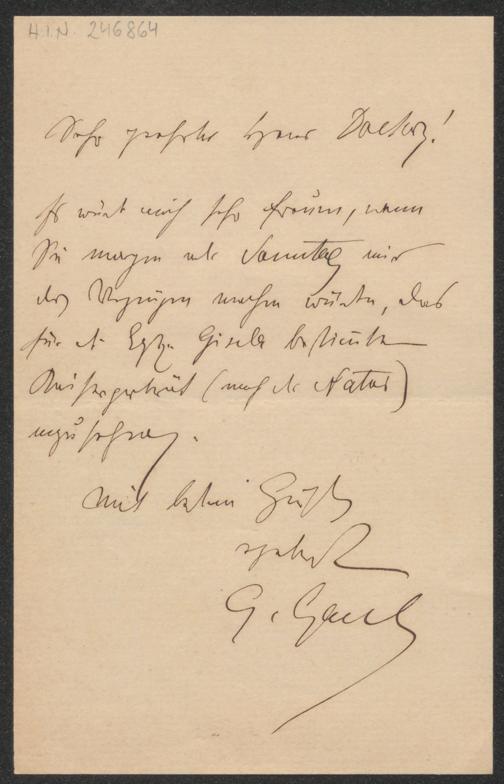 H.I.N. 246864
Sehr geehrter Herr Doctor!
Es würde mich sehr freuen, wenn
Sie morgen als Sonntag mir
das Vergnügen machen würden, das
für d. Erzh. Gisela bestimmte
Kaiserporträt (nach der Natur)
anzusehen.
Mit besten Grüßen
ergebenst
G. Gaul